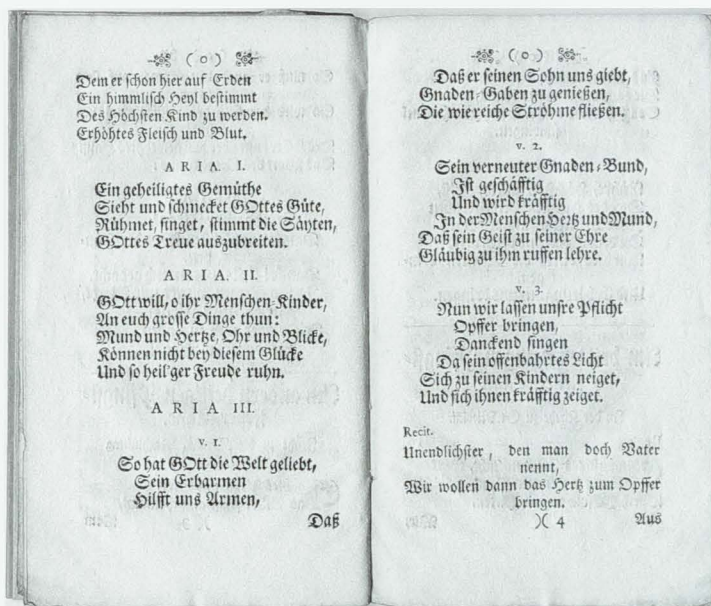 ( o )
Dem er schon hier auf Erden
Ein himmlisch Heyl bestimmt
Des Höchsten Kind zu werden.
Erhöhtes Fleisch und Blut.
ARIA I.
Ein geheiligtes Gemüthe
Sieht und schmecket GOttes Güte,
Rühmet, singet, stimmt die Säyten,
GOttes Treue auszubreiten.
ARIA II.
GOtt will, o ihr Menschen-Kinder,
An euch grosse Dinge thun:
Mund und Hertze, Ohr und Blicke,
Können nicht bey diesem Glücke
Und so heil'ger Freude ruhn.
ARIA III.
v. 1.
So hat GOtt die Welt geliebt,
Sein Erbarmen
Hilfft uns Armen,
Daß
( o )
Daß er seinen Sohn uns giebt,
Gnaden-Gaben zu genießen,
Die wie reiche Ströhme fließen.
v. 2.
Sein verneuter Gnaden-Bund,
Ist geschäfftig
Und wird kräfftig
In der Menschen Hertz und Mund,
Daß sein Geist zu seiner Ehre
Gläubig zu ihm ruffen lehre.
v. 3.
Nun wir lassen unsre Pflicht
Opffer bringen,
Danckend singen
Da sein offenbahrtes Licht
Sich zu seinen Kindern neiget,
Und sich ihnen kräfftig zeiget.
Recit.
Unendlichster, den man doch Vater
nennt,
Wir wollen dann das Hertz zum Opffer
bringen.
)( 4 Aus